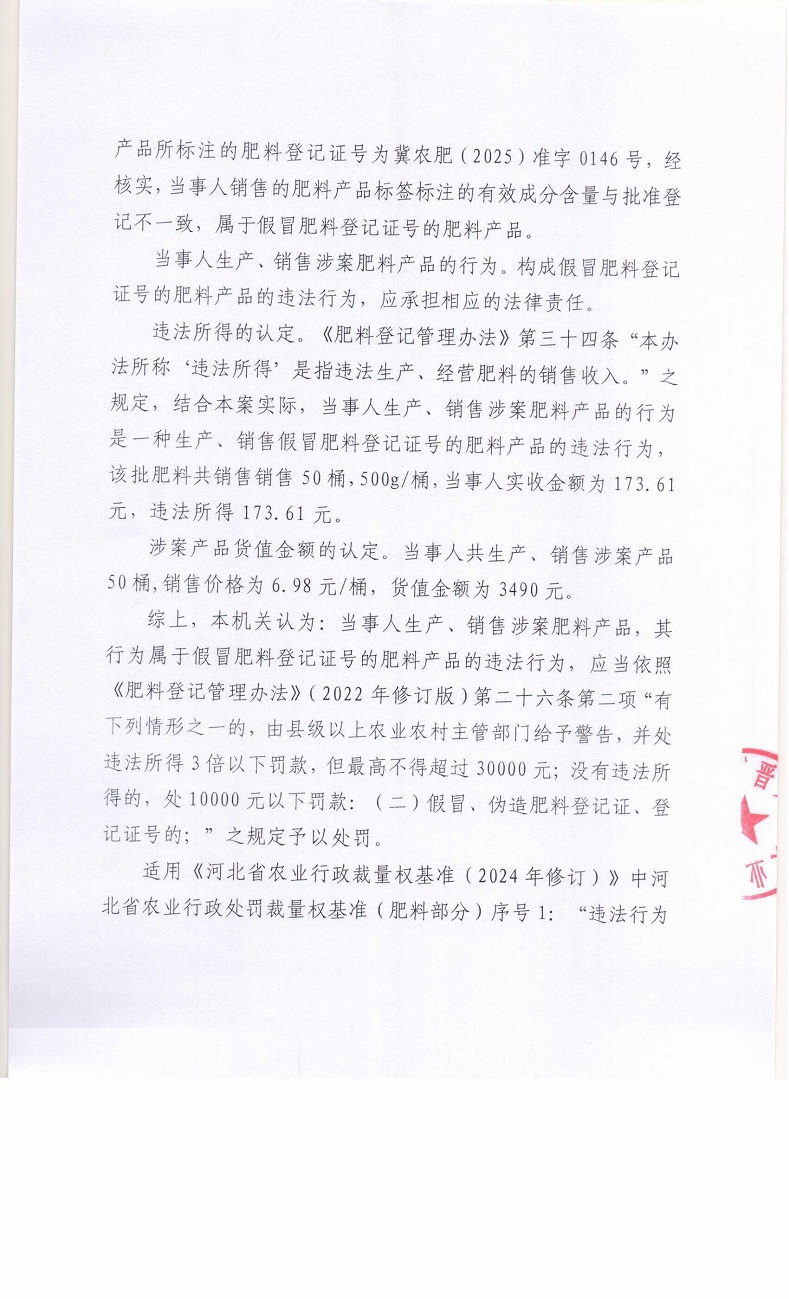 产品所标注的肥料登记证号为冀农肥（2025）准字0146号，经
核实，当事人销售的肥料产品标签标注的有效成分含量与批准登
记不一致，属于假冒肥料登记证号的肥料产品。
当事人生产、销售涉案肥料产品的行为。构成假冒肥料登记
证号的肥料产品的违法行为，应承担相应的法律责任。
违法所得的认定。《肥料登记管理办法》第三十四条“本办
法所称‘违法所得’是指违法生产、经营肥料的销售收入。”之
规定，结合本案实际，当事人生产、销售涉案肥料产品的行为
是一种生产、销售假冒肥料登记证号的肥料产品的违法行为，
该批肥料共销售销售50桶，500g/桶，当事人实收金额为173.61
元，违法所得173.61元。
涉案产品货值金额的认定。当事人共生产、销售涉案产品
50桶，销售价格为6.98元/桶，货值金额为3490元。
综上，本机关认为：当事人生产、销售涉案肥料产品，其
行为属于假冒肥料登记证号的肥料产品的违法行为，应当依照
《肥料登记管理办法》（2022年修订版）第二十六条第二项“有
下列情形之一的，由县级以上农业农村主管部门给予警告，并处
违法所得3倍以下罚款，但最高不得超过30000元；没有违法所
得的，处10000元以下罚款：（二）假冒、伪造肥料登记证、登
记证号的；”之规定予以处罚。
适用《河北省农业行政裁量权基准（2024年修订）》中河
北省农业行政处罚裁量权基准（肥料部分）序号1：“违法行为
晋
业